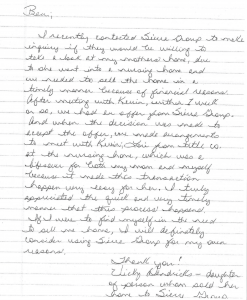 Ben,
I recently contacted Sierra Group to make
inquiry if they would be willing to
take a look at my mothers home, due
to she went into a nursing home and
we needed to sell the home in a
timely manner because of financial reasons.
After meeting with Kevin, within 1 week
or so, we had an offer from Sierra Group.
And when the decision was made to
accept the offer, we made arrangements
to meet with Kevin, from title co.
at the nursing home, which was a
blessing for both my mom and myself
because it made this transaction
happen very easy for her. I truly
appreciated the quiet and very timely
manner that this process happened.
If I were to find myself in the need
to sell my home, I will definitely
consider using Sierra Group for my own
reasons.
Thank you!
Vicky - daughter
of person whom sold her
home to Sierra Group